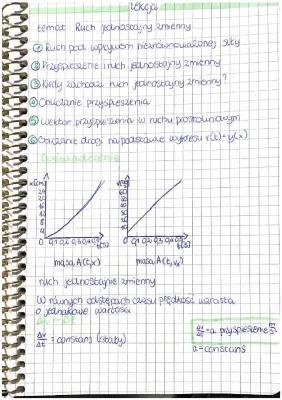 lekcja
temat Ruch jednostajny zmienny
① Ruch pod wpływem niezrównoważonej siły
② Przyspieszenie i ruch jednostajny zmienny
③ Kiedy zachodzi ruch jednostajny zmienny?
④ Obliczanie przyspieszenia
⑤ Wektor przyspieszenia w ruchu prostoliniowym
⑥ Obliczanie drogi na podstawie wykresu
x[cm]
0 0,1 0,2 0,3 0,4
t[s]
0 0,1 0,2 0,3 0,4
t[s]
masa A(t,x)
masa A(t,vₓ)
ruch jednostajnie zmienny
W równych odstępach czasu prędkość wzrasta
o jednakowe wartości
Δv/Δt = constans (stały)
Δv/Δt = a przyspieszenie
a = constans